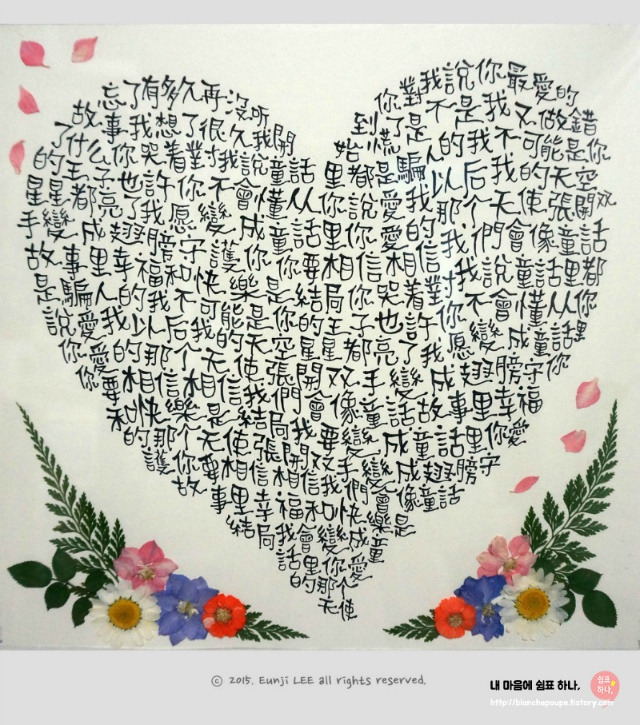 忘了有多久再沒听
到你對我說你最愛的
故事我想了很久我開
始慌了是不是我又做錯
了什么你哭着對我說童話里都是騙人的我不可能是你
的王子也許你不會懂从你說愛我以后我的天空
星星都亮了我愿變成童話里你愛的那个天使張開双
手變成翅膀守護你你要相信相信我們會像童話
故事里幸福和快樂是結局你哭着對我說童話里都
是騙人的我不可能是你的王子也許你不會懂从你
說愛我以后我的天空星星都亮了我愿變成童話里
你愛的那个天使張開双手變成翅膀守護你
你要相信相信我們會像童話故事里幸福
和快樂是結局我要變成童話里你愛
的那个天使張開双手變成翅膀守
護你你要相信相信我們會像童話
故事里幸福和快樂是
結局我會變成童
話里你愛
的那个
天使
© 2015. Eunji LEE all rights reserved.
내 마음에 쉼표 하나,
쉼표 하나,
http://blanchepoupe.tistory.com